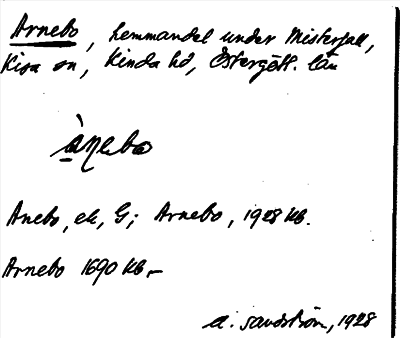 Arnebo, hemmandel under Misterfall,
Kisa sn, Kinda hd, Östergötl. län
ànebo
Anebo, ek, G; Arnebo, 1928 kb.
Arnebo 1690 kb.–
A. Sandström, 1928